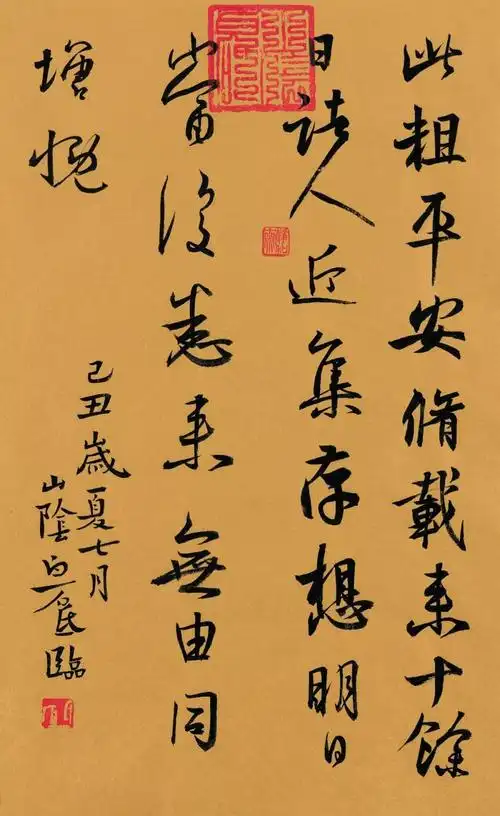 此粗平安脩載来十餘
日諸人近集存想明日
當復悉来無由同
增慨
己丑歲夏七月
山陰臨